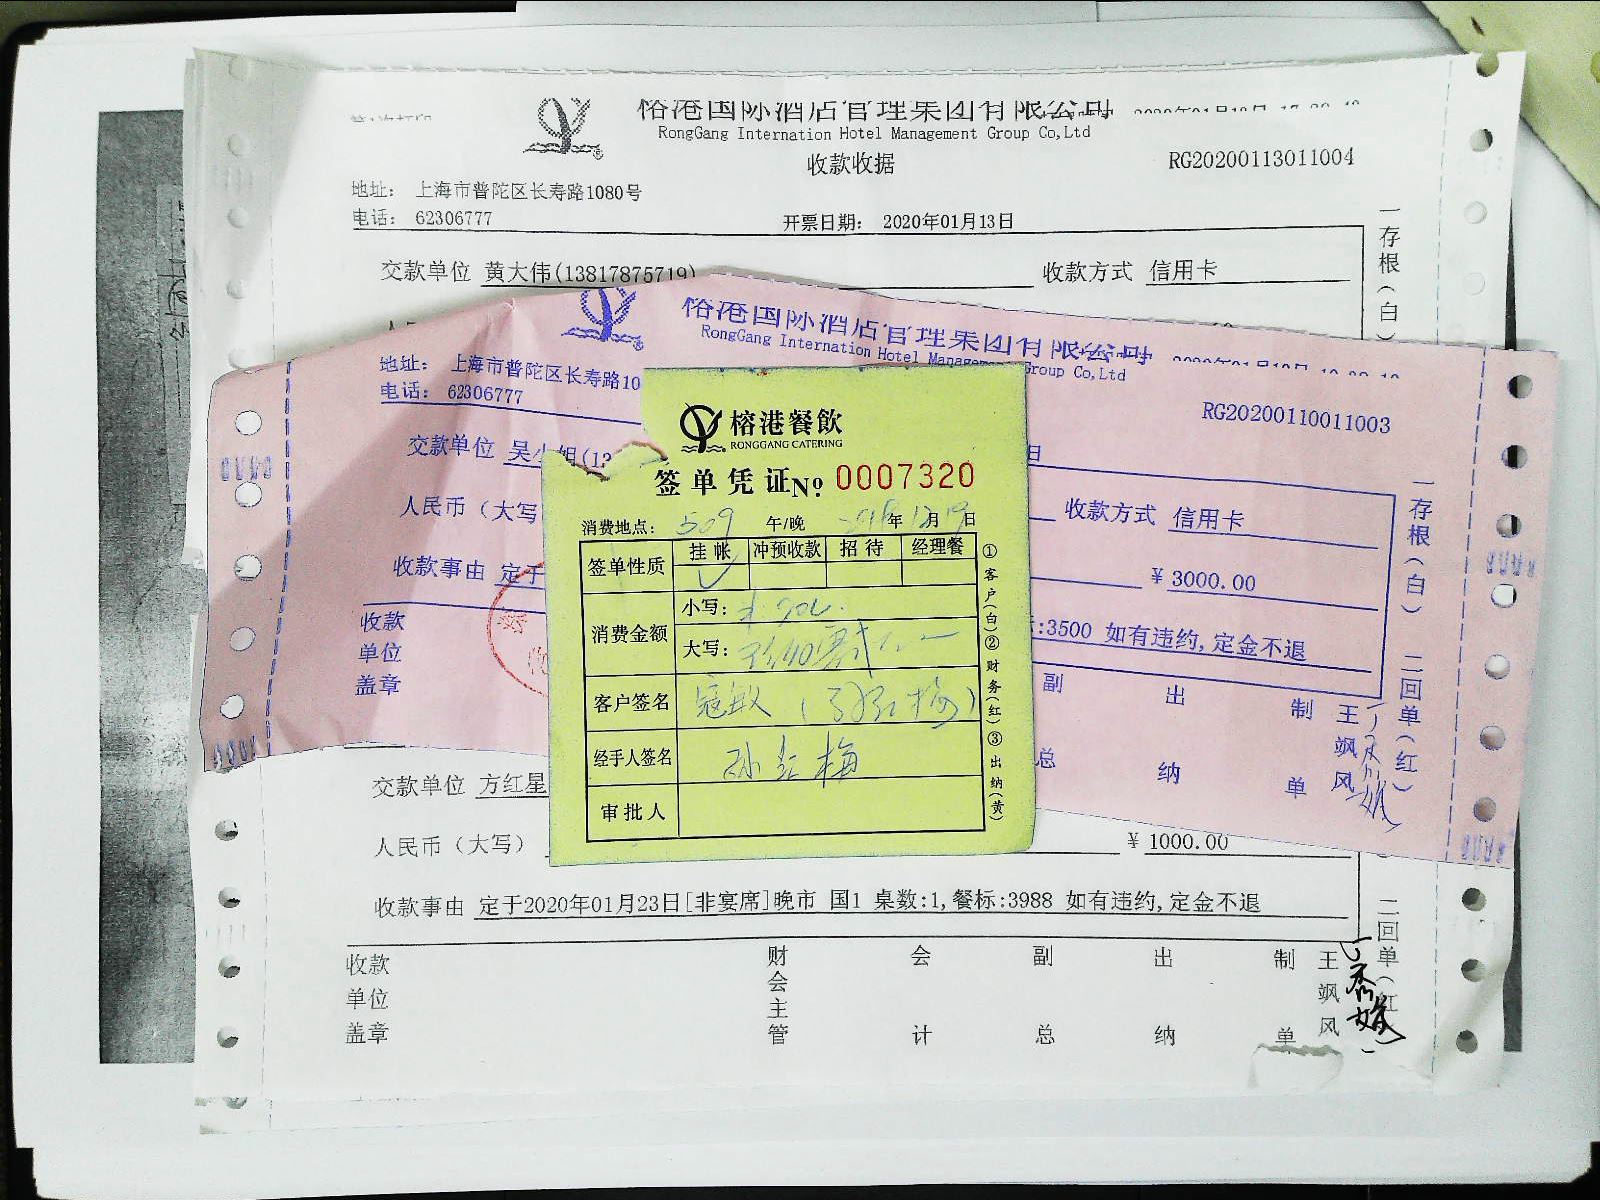 榕港国际酒店管理集团有限公司
RongGang Internation Hotel Management Group Co,Ltd
收款收据
RG20200113011004
地址： 上海市普陀区长寿路1080号
电话： 62306777
开票日期： 2020年01月13日
交款单位 黄大伟(13817875719)
收款方式 信用卡
一存根(白)
榕港国际酒店管理集团有限公司
RongGang Internation Hotel Group Co,Ltd
RG20200110011003
地址： 上海市普陀区长寿路10
电话： 62306777
日
交款单位 吴小姐(13
收款方式 信用卡
人民币（大写
¥ 3000.00
收款事由 定于
:3500 如有违约,定金不退
收款单位盖章
副总
出纳
制单
王飒风
一存根(白)
二回单(红)
榕港餐飲
RONGGANG CATERING
签单凭证№ 0007320
消费地点： 509 午/晚 年 月 日
签单性质 挂帐 冲预收款 招待 经理餐
消费金额 小写：
大写：
客户签名 寇敏
经手人签名 孙红梅
审批人
①客户(白)②财务(红)③出纳(黄)
交款单位 方红星
人民币（大写）
¥ 1000.00
收款事由 定于2020年01月23日[非宴席]晚市 国1 桌数:1,餐标:3988 如有违约,定金不退
收款单位盖章
财会主管
会计
副总
出纳
制单
王飒风
二回单(红)